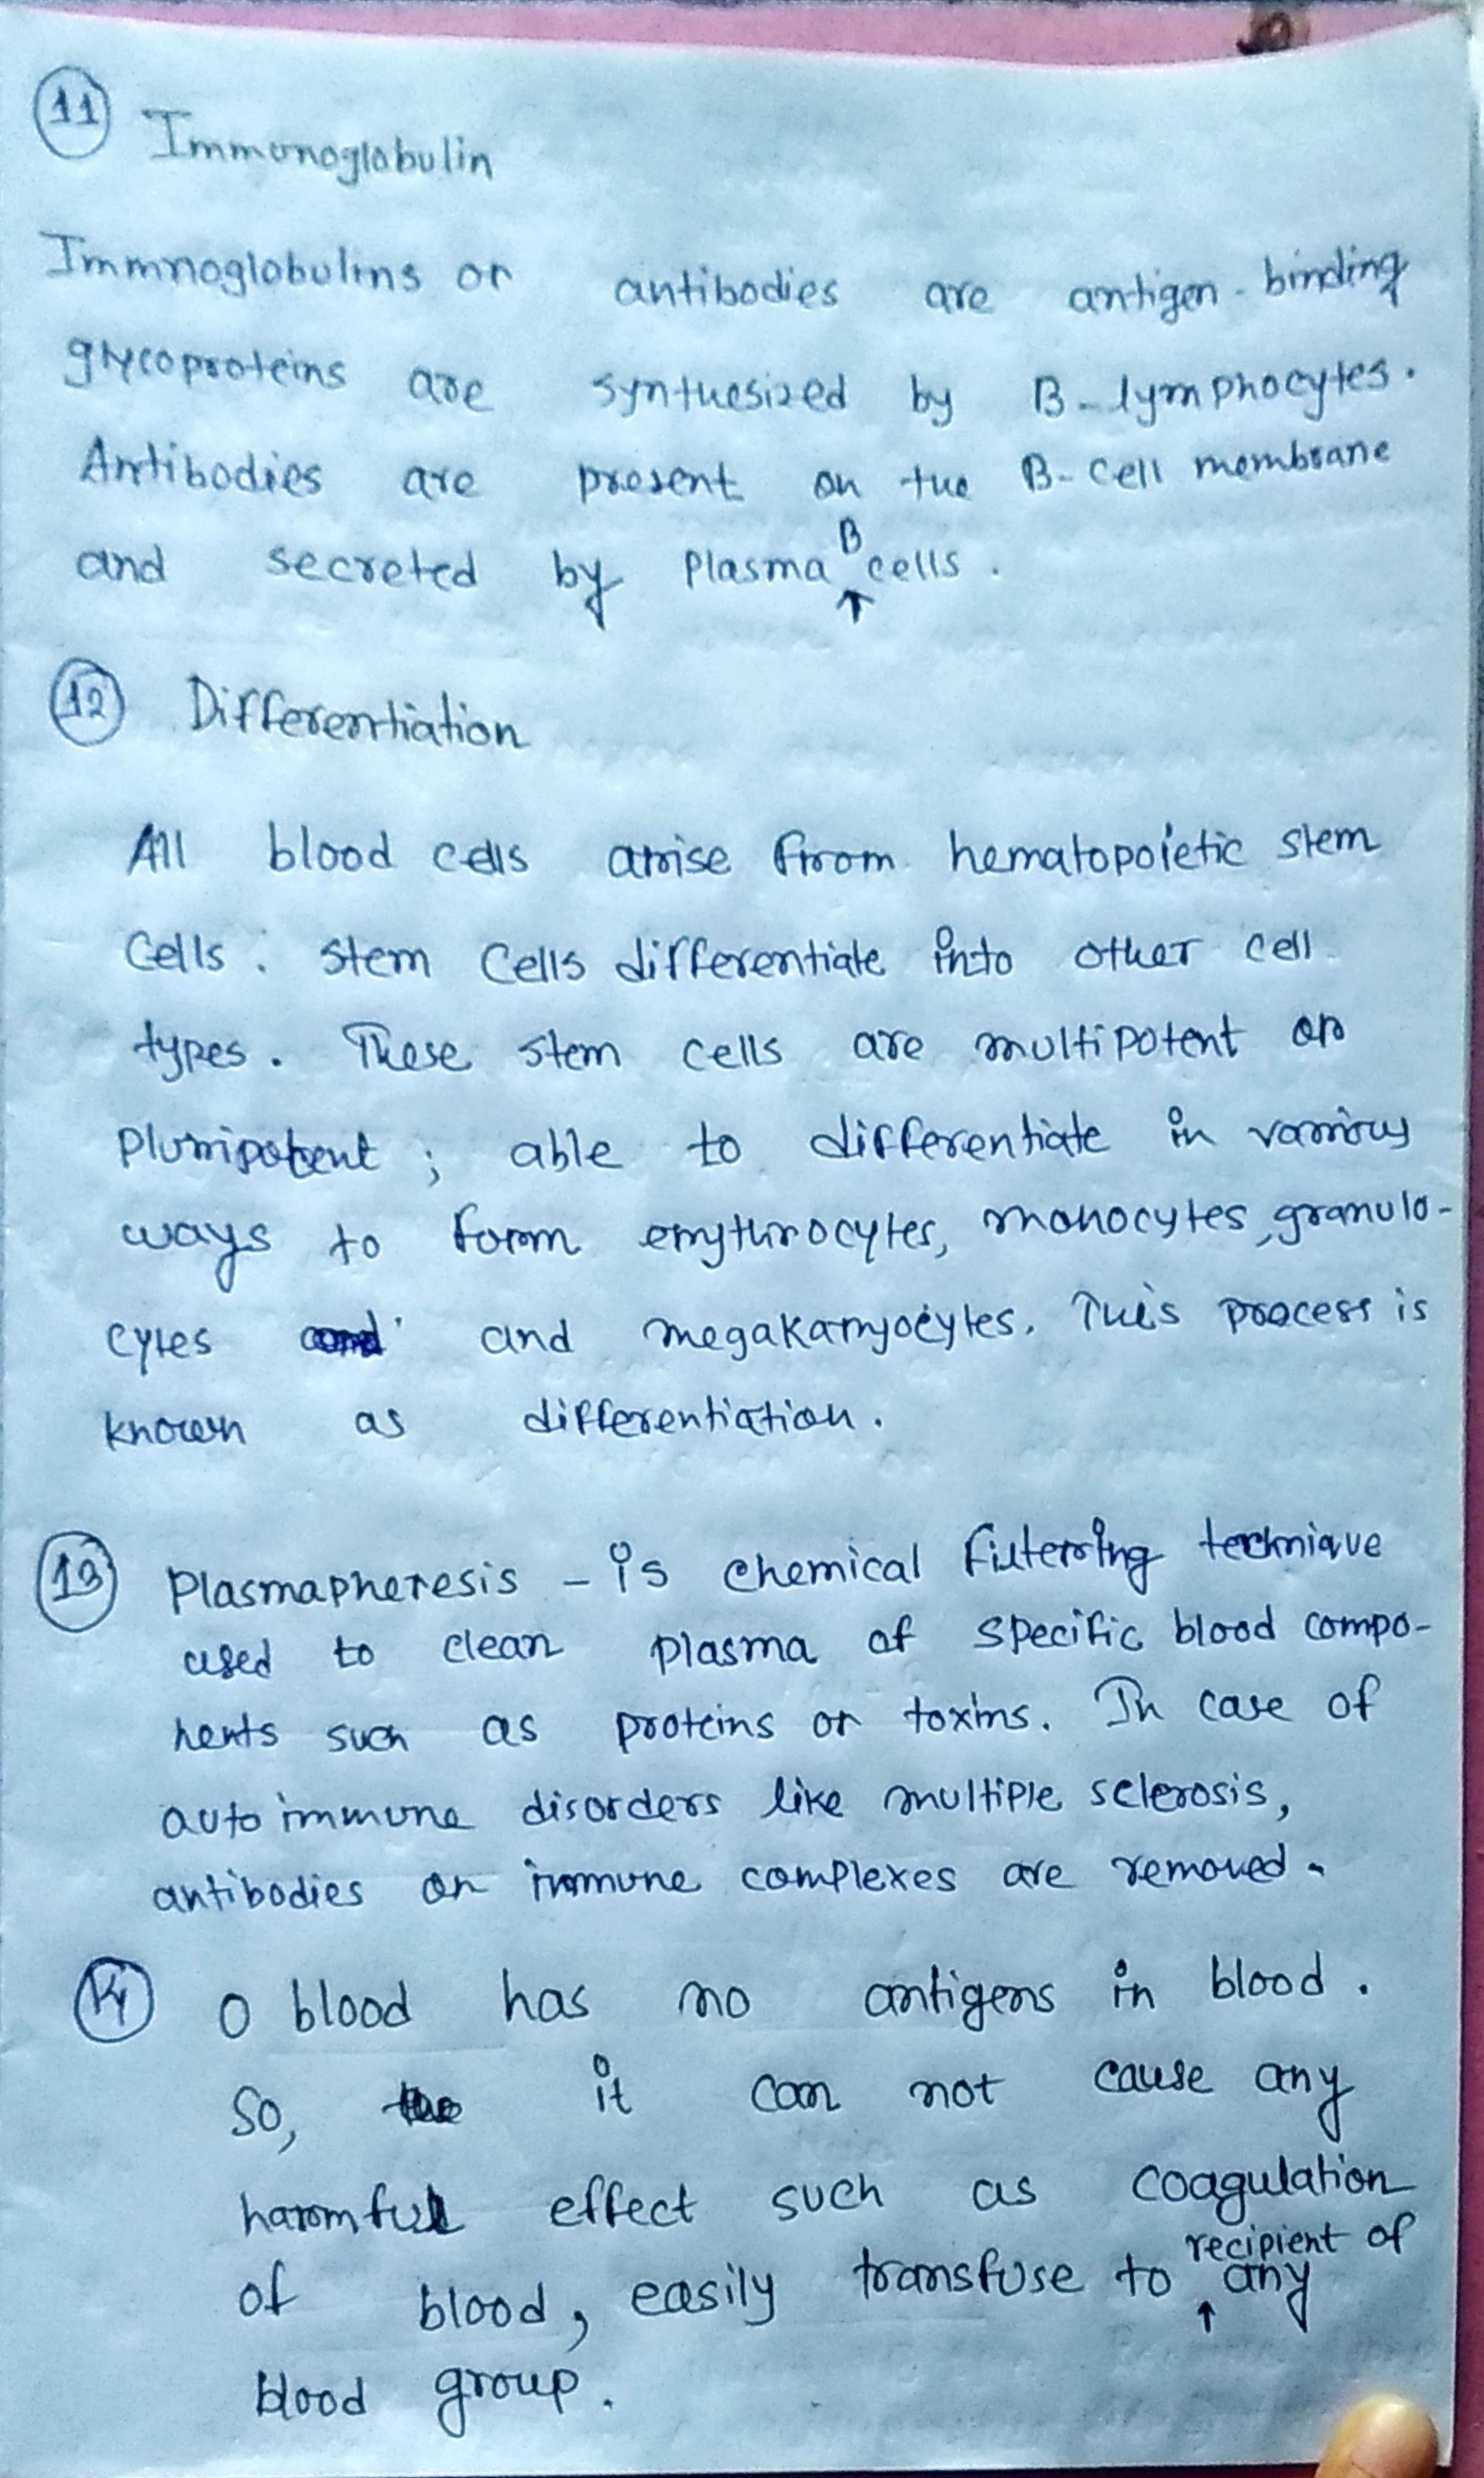 11 Immunoglobulin
Immnoglobulins or antibodies are antigen-binding
glycoproteins are synthesized by B-lymphocytes.
Antibodies are present on the B-cell membrane
and secreted by Plasma B cells.
12 Differentiation
All blood cells arise from hematopoietic stem
Cells. stem Cells differentiate into other cell
types. These stem cells are multipotent or
Pluripotent; able to differentiate in various
ways to form erythrocytes, monocytes, granulo-
cytes and megakaryocytes. This process is
known as differentiation.
13 Plasmapheresis - is chemical filtering technique
used to clean plasma of specific blood compo-
nents such as proteins or toxins. In case of
auto immune disorders like multiple sclerosis,
antibodies or immune complexes are removed.
14 O blood has no antigens in blood.
So, it can not cause any
harmful effect such as coagulation
of blood, easily transfuse to recipient of any
blood group.